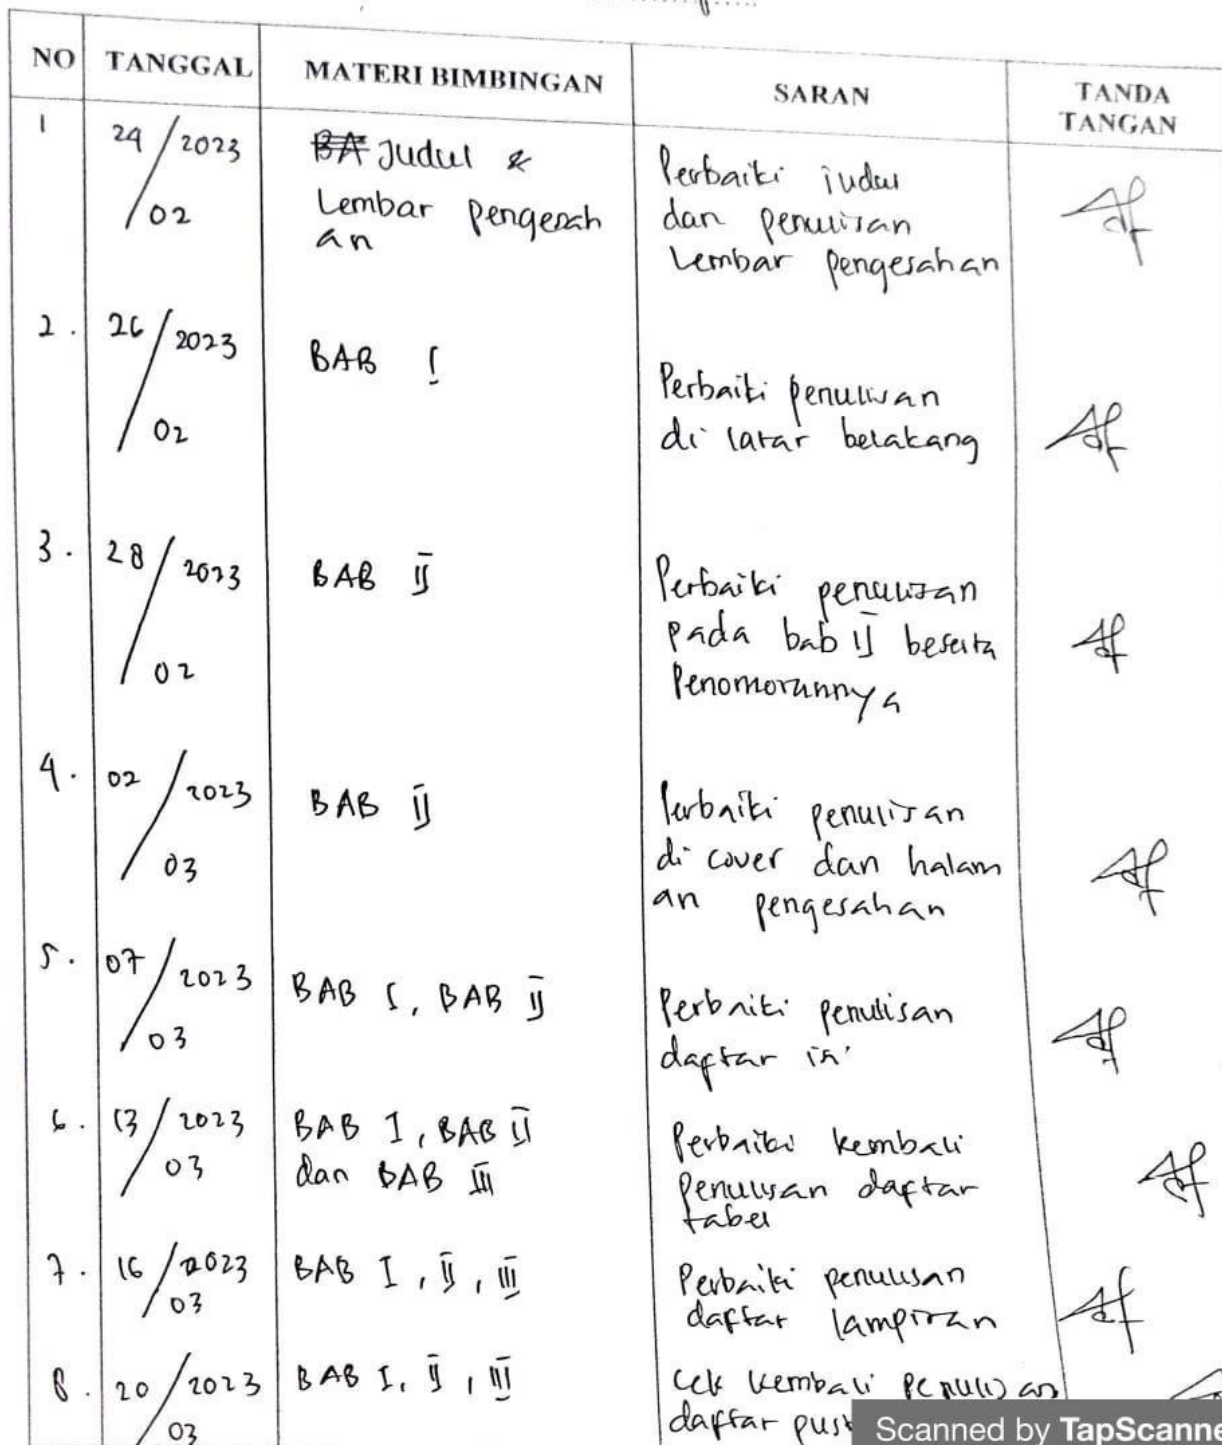 NO TANGGAL MATERI BIMBINGAN SARAN TANDA TANGAN
1 24/02 2023 Judul & Perbaiki judul
Lembar pengesah dan penulisan
an Lembar pengesahan
2. 26/02 2023 BAB I Perbaiki penulisan
di latar belakang
3. 28/02 2023 BAB II Perbaiki penulisan
pada bab II beserta
Penomorannya
4. 02/03 2023 BAB II Perbaiki penulisan
di cover dan halam
an pengesahan
5. 07/03 2023 BAB I, BAB II Perbaiki penulisan
daftar isi
6. 13/03 2023 BAB I, BAB II Perbaiki kembali
dan BAB III penulisan daftar
tabel
7. 16/03 2023 BAB I, II, III Perbaiki penulisan
daftar lampiran
8. 20/03 2023 BAB I, II, III Cek kembali penulisan
daftar
Scanned by TapScanne